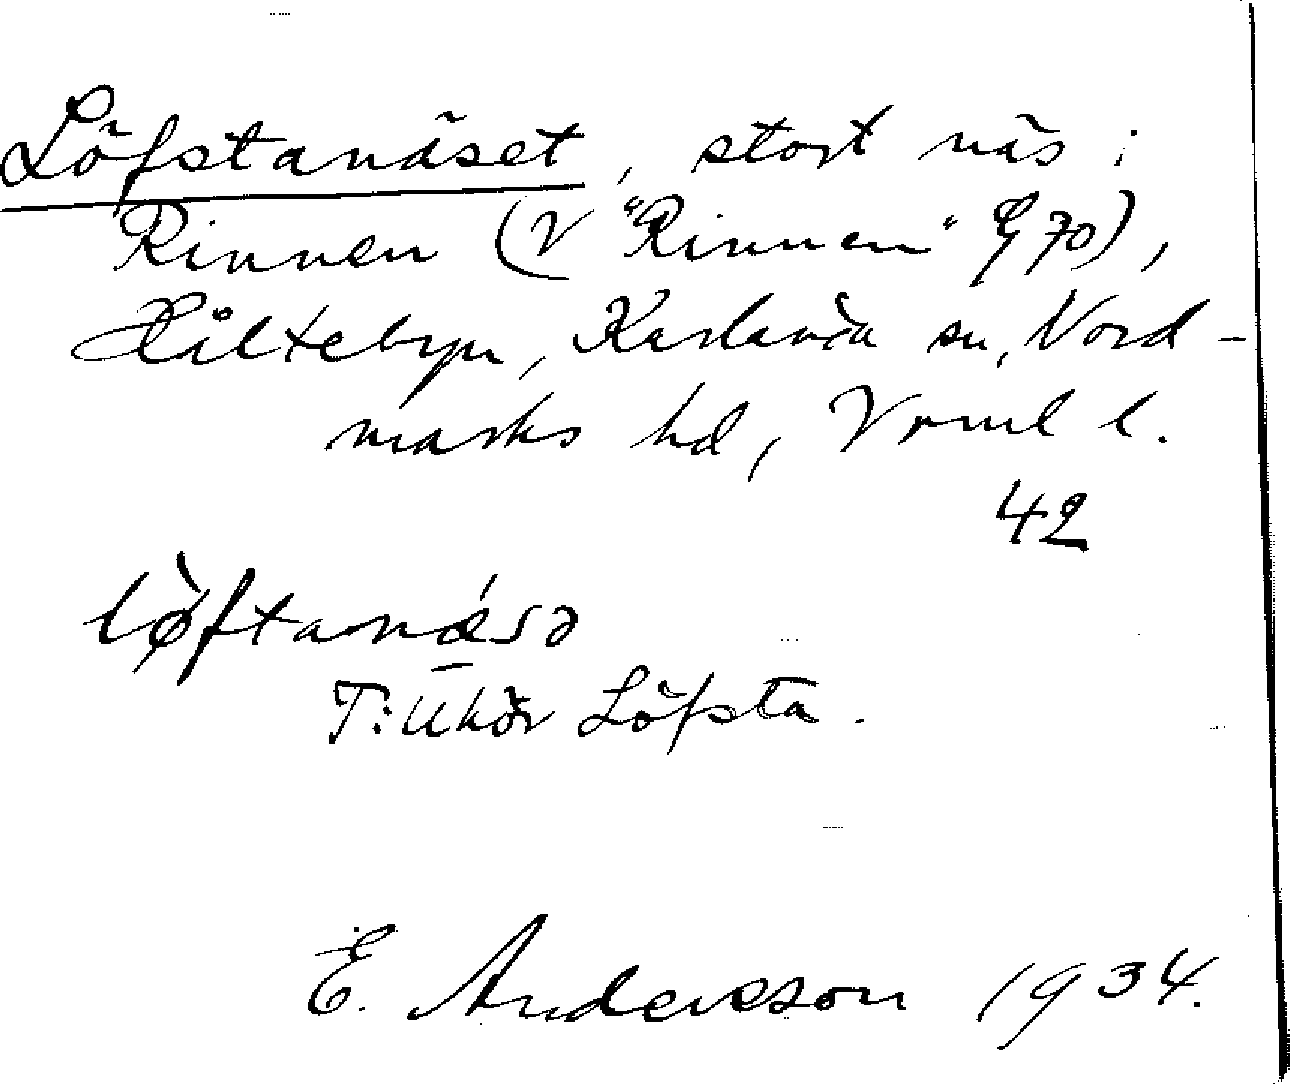 Löfstanäset, stort näs i
Rinnen (V "Rinnen" G 70),
Håltebyn, Karlanda sn, Nord-
marks hd, Vrml l.
42
lø̀ftanǽsə
T: Ukör Löfsta.
E. Andersson 1934.